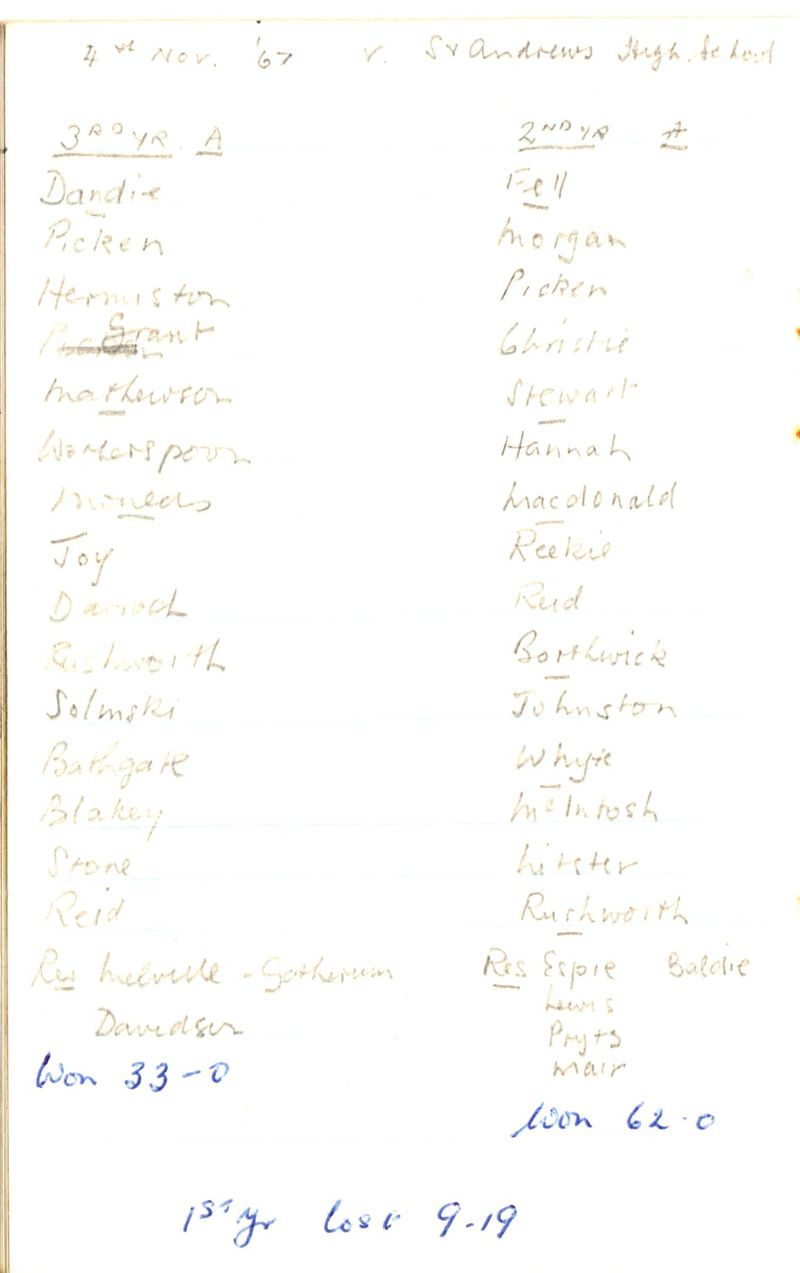 4th Nov. '67 v. St Andrews High School
3RD YR A
Dandie
Picken
Hermiston
Grant
Mathewson
Wotherspoon
Joy
Darroch
Rushworth
Solinski
Bathgate
Blakey
Stone
Reid
Res Melville - Gotherum
Davidson
Won 33-0
2ND YR A
Fell
Morgan
Picken
Christie
Stewart
Hannah
Macdonald
Reekie
Reid
Borthwick
Johnston
Whyte
McIntosh
Litster
Rushworth
Res Espie Baldie
Lewis
Mair
Won 62-0
1ST yr lost 9-19